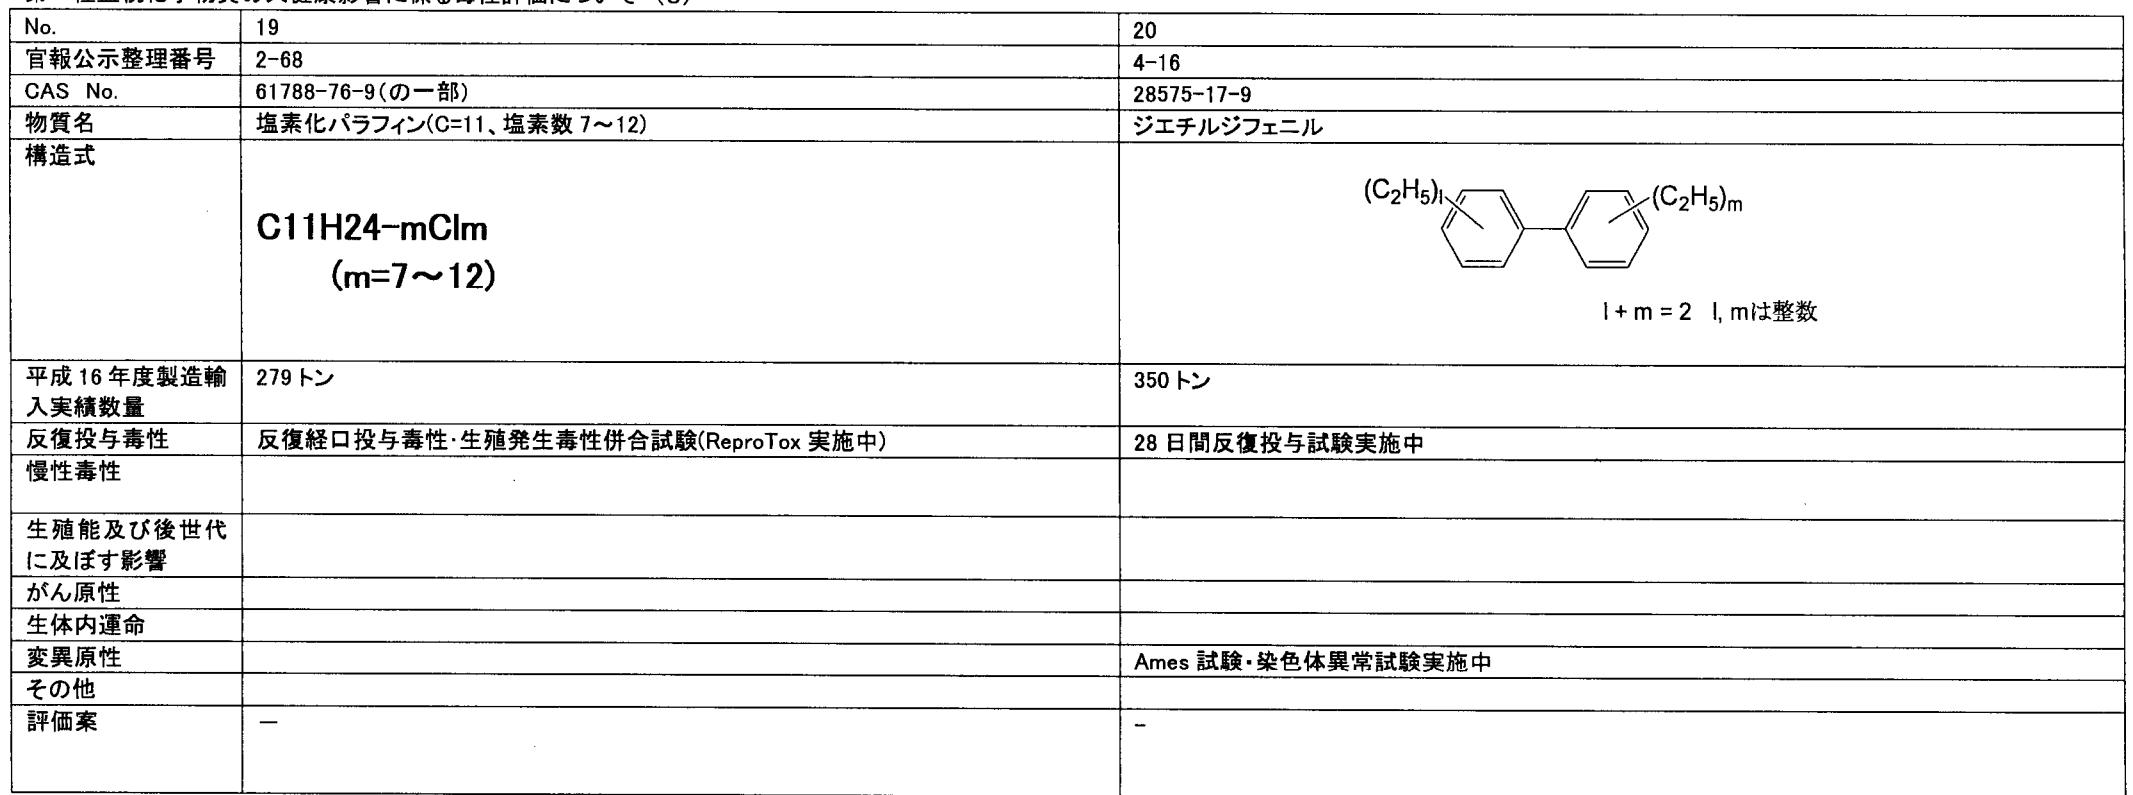 No. 19 20
官報公示整理番号 2-68 4-16
CAS No. 61788-76-9(の一部) 28575-17-9
物質名 塩素化パラフィン(C=11、塩素数 7~12) ジエチルジフェニル
構造式
C11H24-mClm
(m=7~12)
(C2H5)l (C2H5)m
l + m = 2 l, mは整数
平成 16 年度製造輸 279トン 350トン
入実績数量
反復投与毒性 反復経口投与毒性・生殖発生毒性併合試験(ReproTox 実施中) 28 日間反復投与試験実施中
慢性毒性
生殖能及び後世代
に及ぼす影響
がん原性
生体内運命
変異原性 Ames 試験・染色体異常試験実施中
その他
評価案 — –